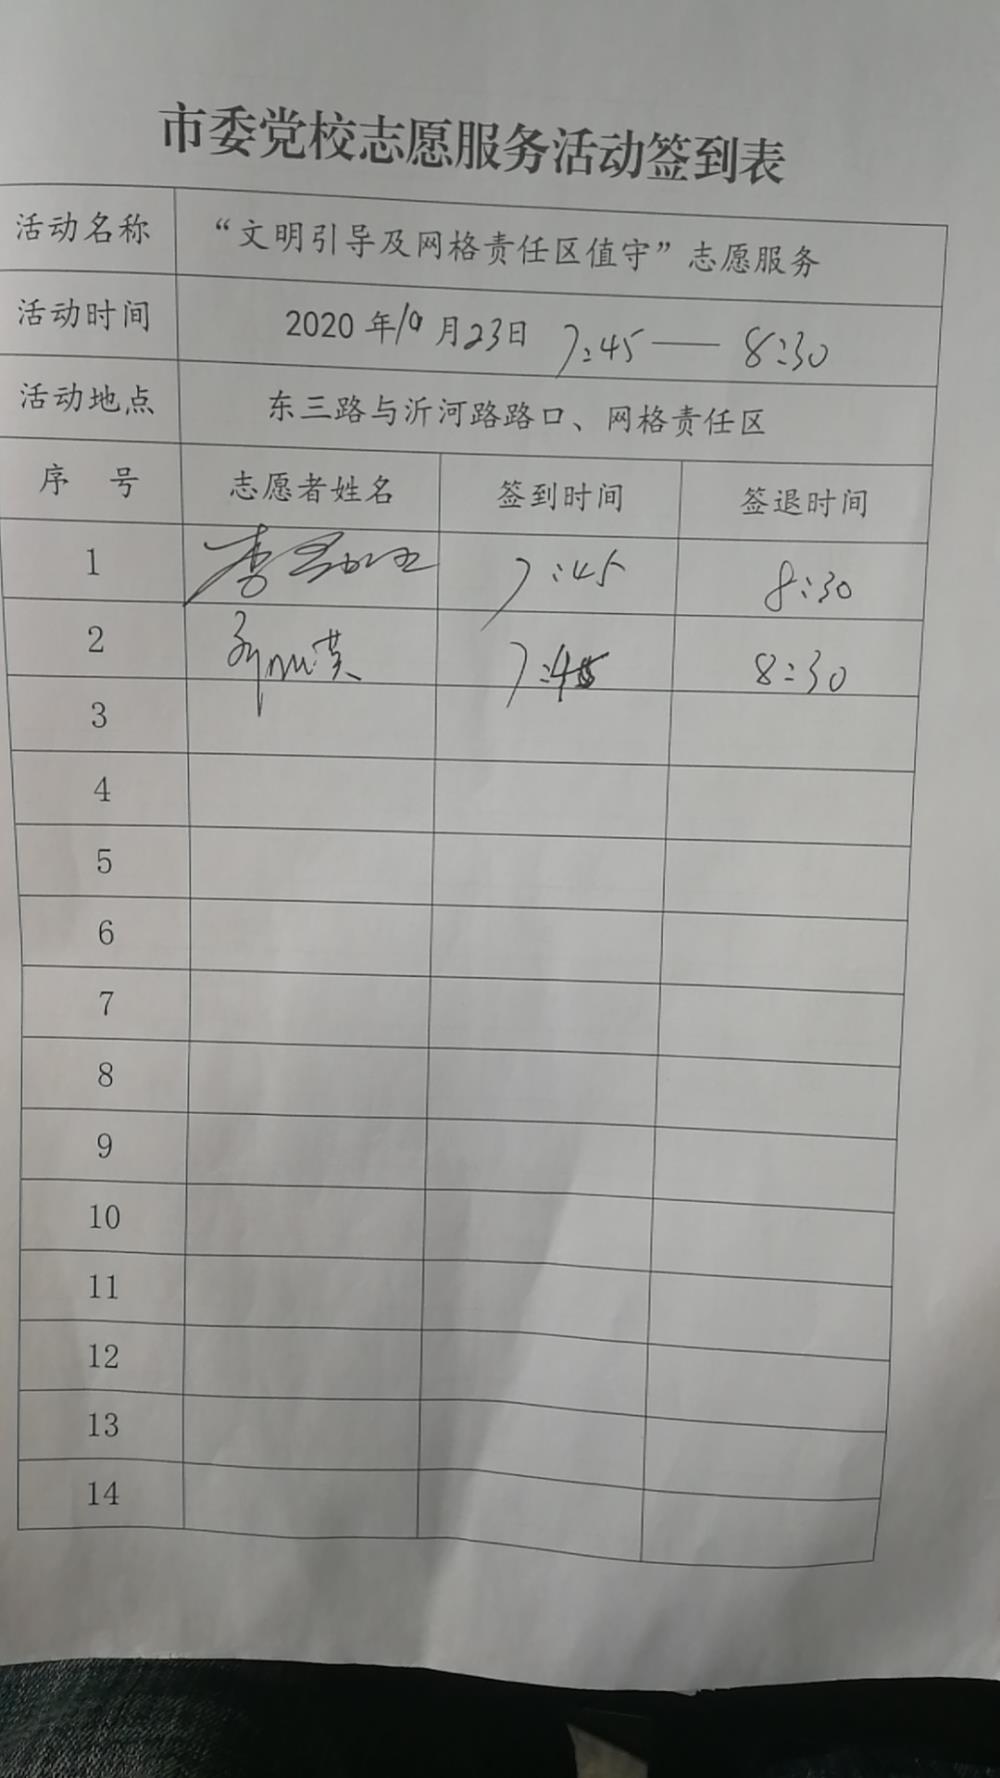 市委党校志愿服务活动签到表
活动名称 “文明引导及网格责任区值守”志愿服务
活动时间 2020年10月23日 7:45——8:30
活动地点 东三路与沂河路路口、网格责任区
序 号 志愿者姓名 签到时间 签退时间
1 李 7:45 8:30
2 7:45 8:30
3
4
5
6
7
8
9
10
11
12
13
14